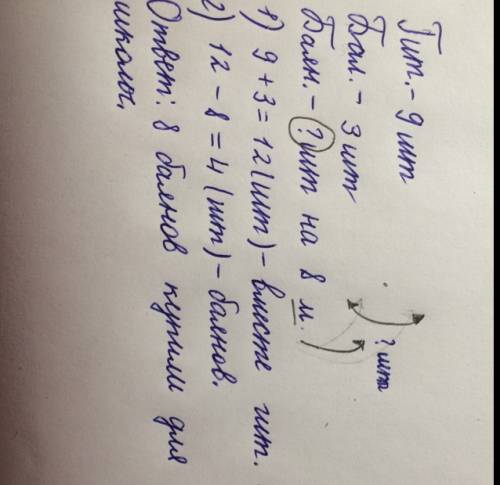 Гит. - 9 шт
Бал. - 3 шт
Баян. - ? шт на 8 м.
? шт
1) 9 + 3 = 12 (шт) - вместе шт.
2) 12 - 8 = 4 (шт) - баянов.
Ответ: 8 баянов купили для
школы.